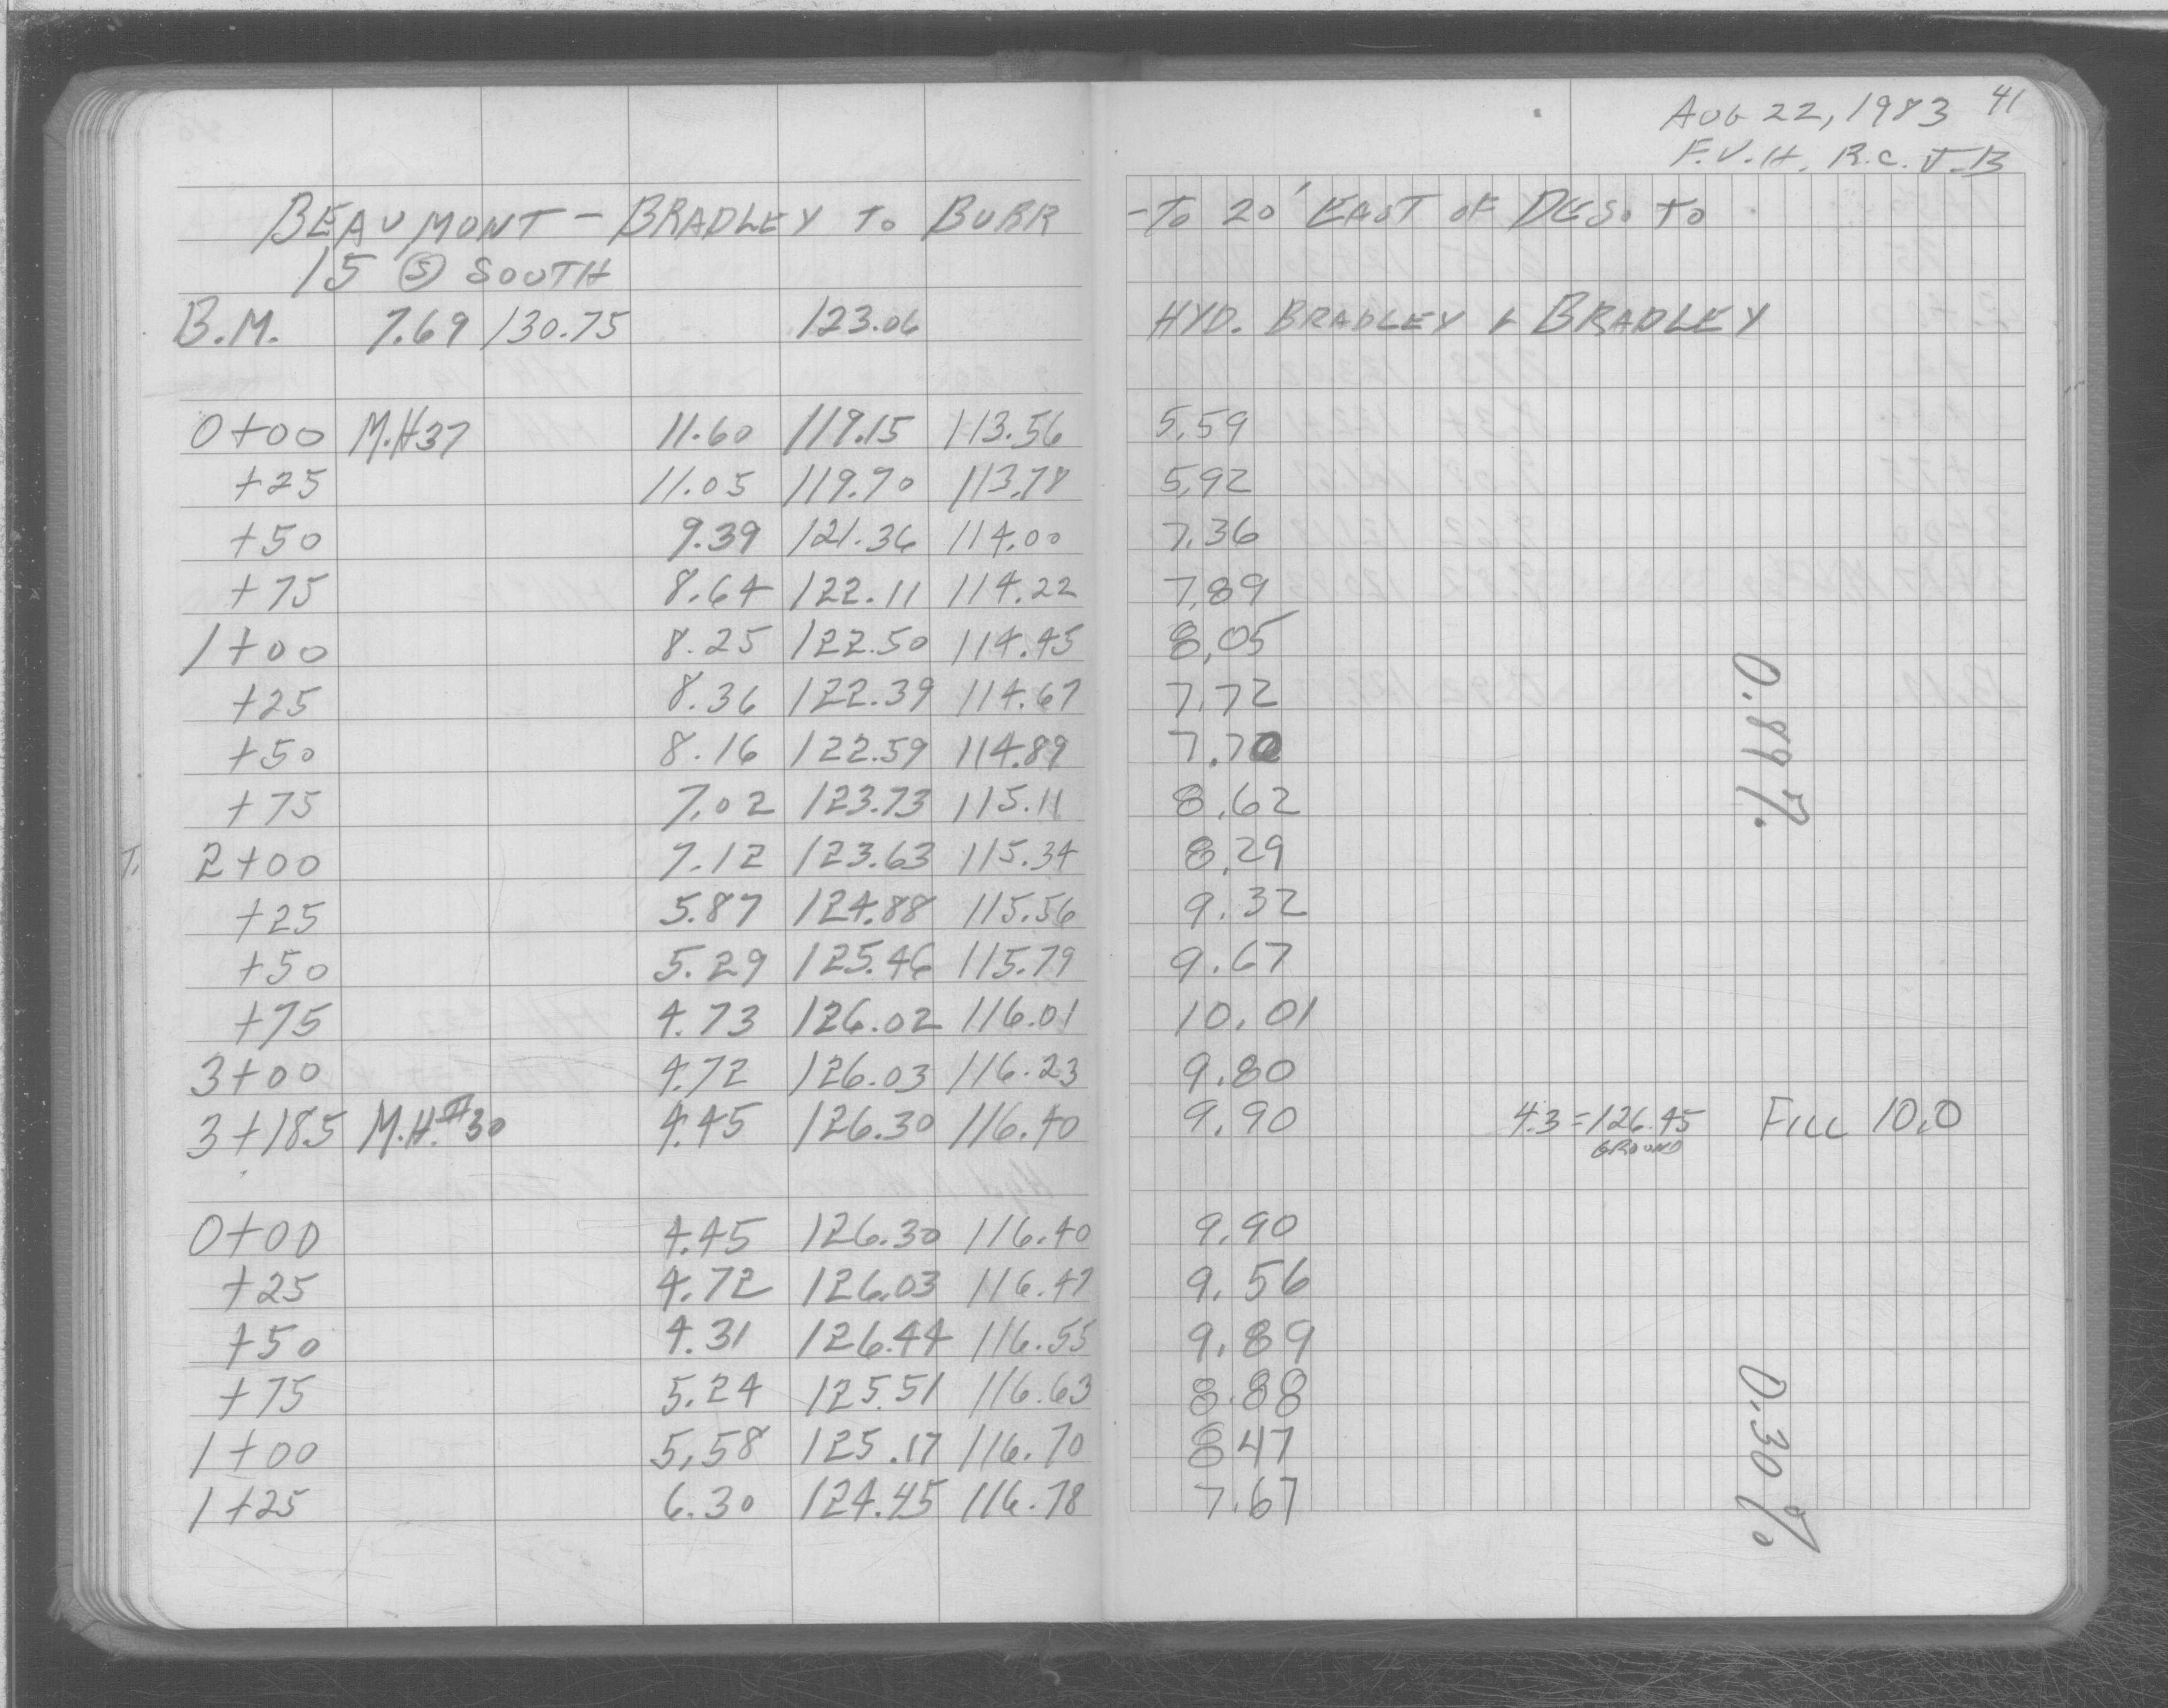 AUG 22, 1983 41
F.V.H. R.C. J.B
BEAUMONT - BRADLEY TO BURR - TO 20' EAST OF DESOTO
15 Ⓢ SOUTH
B.M. 7.69 130.75 123.06 HYD. BRADLEY & BRADLEY
0+00 M.H37 11.60 119.15 113.56 5.59
+25 11.05 119.70 113.78 5.92
+50 9.39 121.36 114.00 7.36
+75 8.64 122.11 114.22 7.89
1+00 8.25 122.50 114.45 8.05
+25 8.36 122.39 114.67 7.72
+50 8.16 122.59 114.89 7.70
+75 7.02 123.73 115.11 8.62
2+00 7.12 123.63 115.34 8.29
+25 5.87 124.88 115.56 9.32
+50 5.29 125.46 115.79 9.67
+75 4.73 126.02 116.01 10.01
3+00 4.72 126.03 116.23 9.80
3+18.5 M.H.#30 4.45 126.30 116.40 9.90 4.3=126.45 FILL 10.0
GROUND
0.89%
0+00 4.45 126.30 116.40 9.90
+25 4.72 126.03 116.47 9.56
+50 4.31 126.44 116.55 9.89
+75 5.24 125.51 116.63 8.88
1+00 5.58 125.17 116.70 8.47
1+25 6.30 124.45 116.78 7.67
0.30%